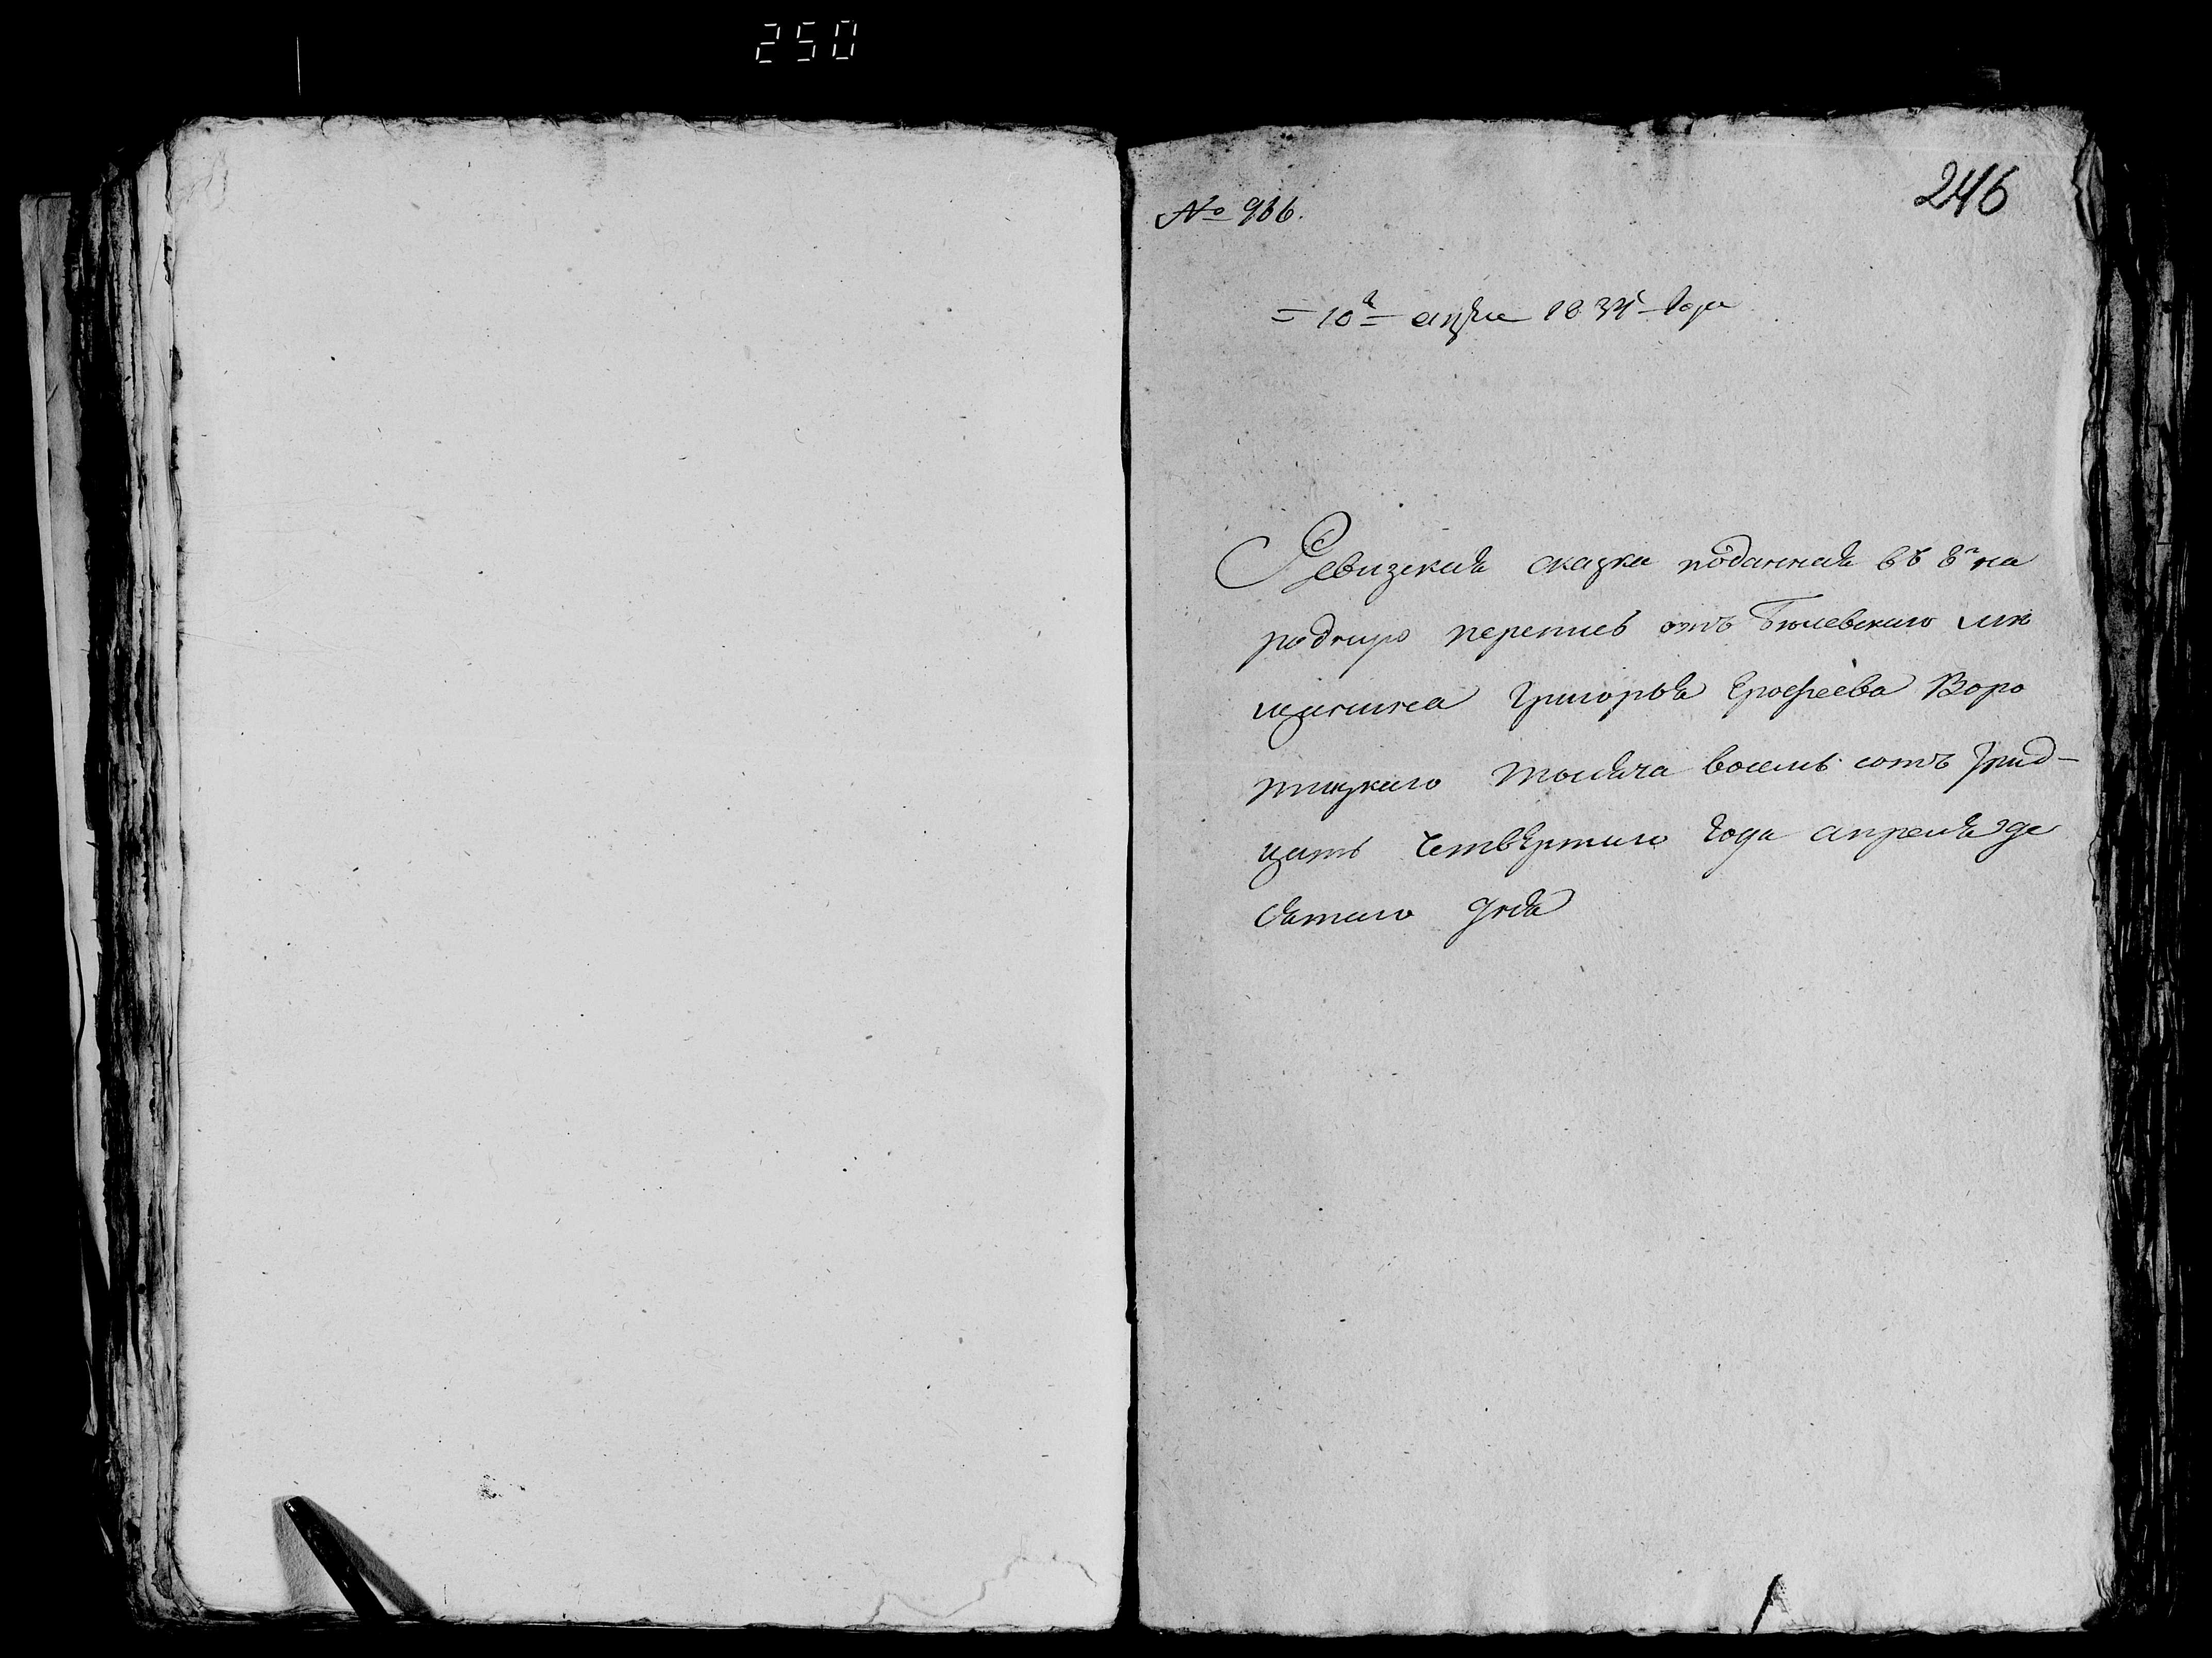 250
246
№ 966.
= 10го = апре 1834 года
Ревизская сказка поданная въ 8ю на
родную перепись отъ Белевскаго мѣ
щанина Григорья Ерофеева Воро
тицкаго тысяча восемь сотъ трид-
цать Четвертаго Года апреля де
сятаго дня